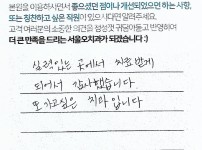 본원을 이용하시면서 좋으셨던 점이나 개선되었으면 하는 사항,
또는 칭찬하고 싶은 직원이 있으시다면 알려주세요.
고객 여러분의 소중한 의견을 정성껏 귀담아듣고 반영하여
더 큰 만족을 드리는 서울오치과가 되겠습니다 :)
실력있는 곳에서 치료받게
되어서 감사했습니다
또 가고싶은 치과 입니다